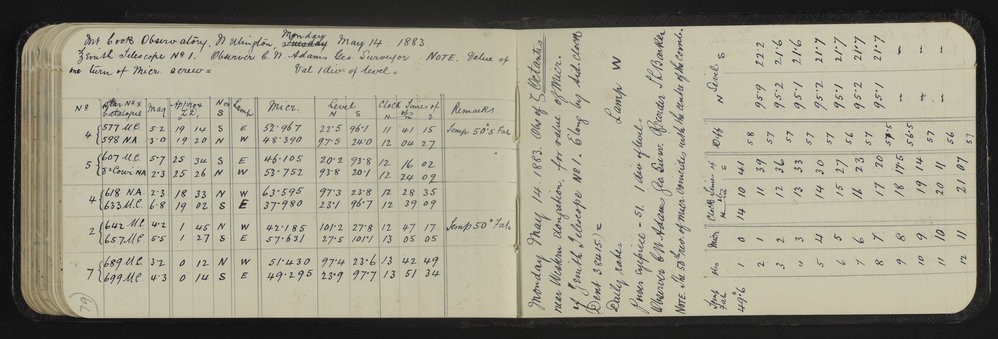 Mt Cook Observatory, Wellington, Monday May 14. 1883.
Zenith Telescope No 1. Observer C.W. Adams Geo Surveyor NOTE. Value of
one turn of Micr. screw =
Val 1 div of level =
No Star No & Catalogue Mag Approx Z.D. N or S Lamp Micr. Level N S Clock Times of Obs H M S Remarks
4 { 577 M.C. 5·2 19 14 S E 52·967 22·5 96·1 11 41 15 Temp 50°·5 Fah
598 NA 3·0 19 20 N W 48·390 97·5 24·0 12 04 27
5 { 607 M.C. 5·7 25 34 S E 46·105 20·2 93·8 12 16 02
Corvi NA 2·3 25 26 N W 53·752 93·8 20·1 12 24 09
4 { 618 NA 2·3 18 33 N W 63·595 97·3 23·8 12 28 35
633 M.C. 6·8 19 02 S E 37·980 23·1 96·7 12 39 09
2 { 642 M.C. 4·2 1 45 N W 42·185 101·2 27·8 12 47 17 Temp 50° Fah
657 M.C. 5·5 1 27 S E 57·631 27·5 101·1 13 05 05
7 { 689 M.C. 3·2 0 12 N W 51·430 97·4 23·6 13 42 49
699 M.C. 4·3 0 14 S E 49·295 23·9 97·7 13 51 34
79)
Monday May 14 1883. Obs of ζ Octantis
near Western Elongation, for value of Micr.
of Zenith Telescope No 1. Elong by Sid. clock
(Dent 38415) =
Daily rate = Lamp W
Power eyepiece = 51. 1 div of level =
Observer C.W. Adams Geo Surv. Recorder Barker
NOTE. The 50th rev of micr coincides with the center of the comb.
Temp Fah Micr Clock Times of H M S Diffs Level N S
49°·6 1 0 14 10 41 58 95·9 22·2
2 1 11 39 57 95·2 21·6
3 2 12 36 57 95·1 21·6
4 3 13 33 57 95·2 21·7
5 4 14 30 57 95·1 21·7
6 5 15 27 56 95·2 21·7
7 6 16 23 57 95·1 21·7
8 7 17 20 57·5 —
9 8 18 17·5 56·5 —
10 9 19 14 57 —
11 10 20 11 56
12 11 21 07 57